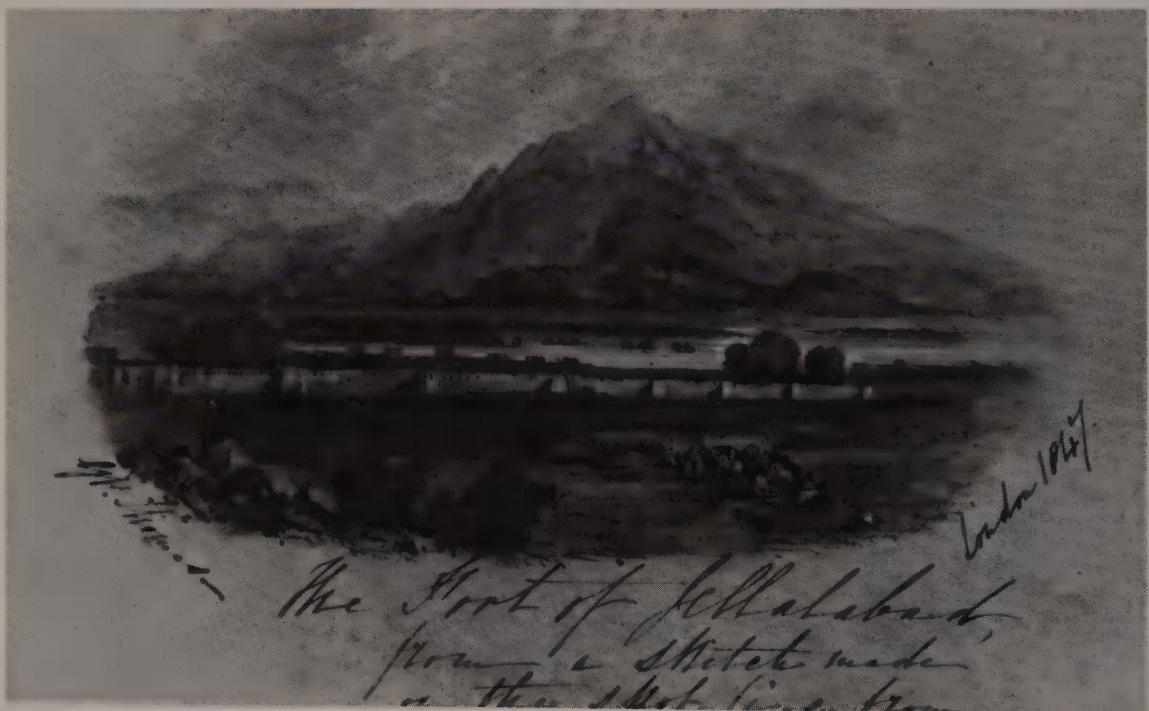 London 1847.
The Fort of Jellalabad,
from a sketch made
on the spot from